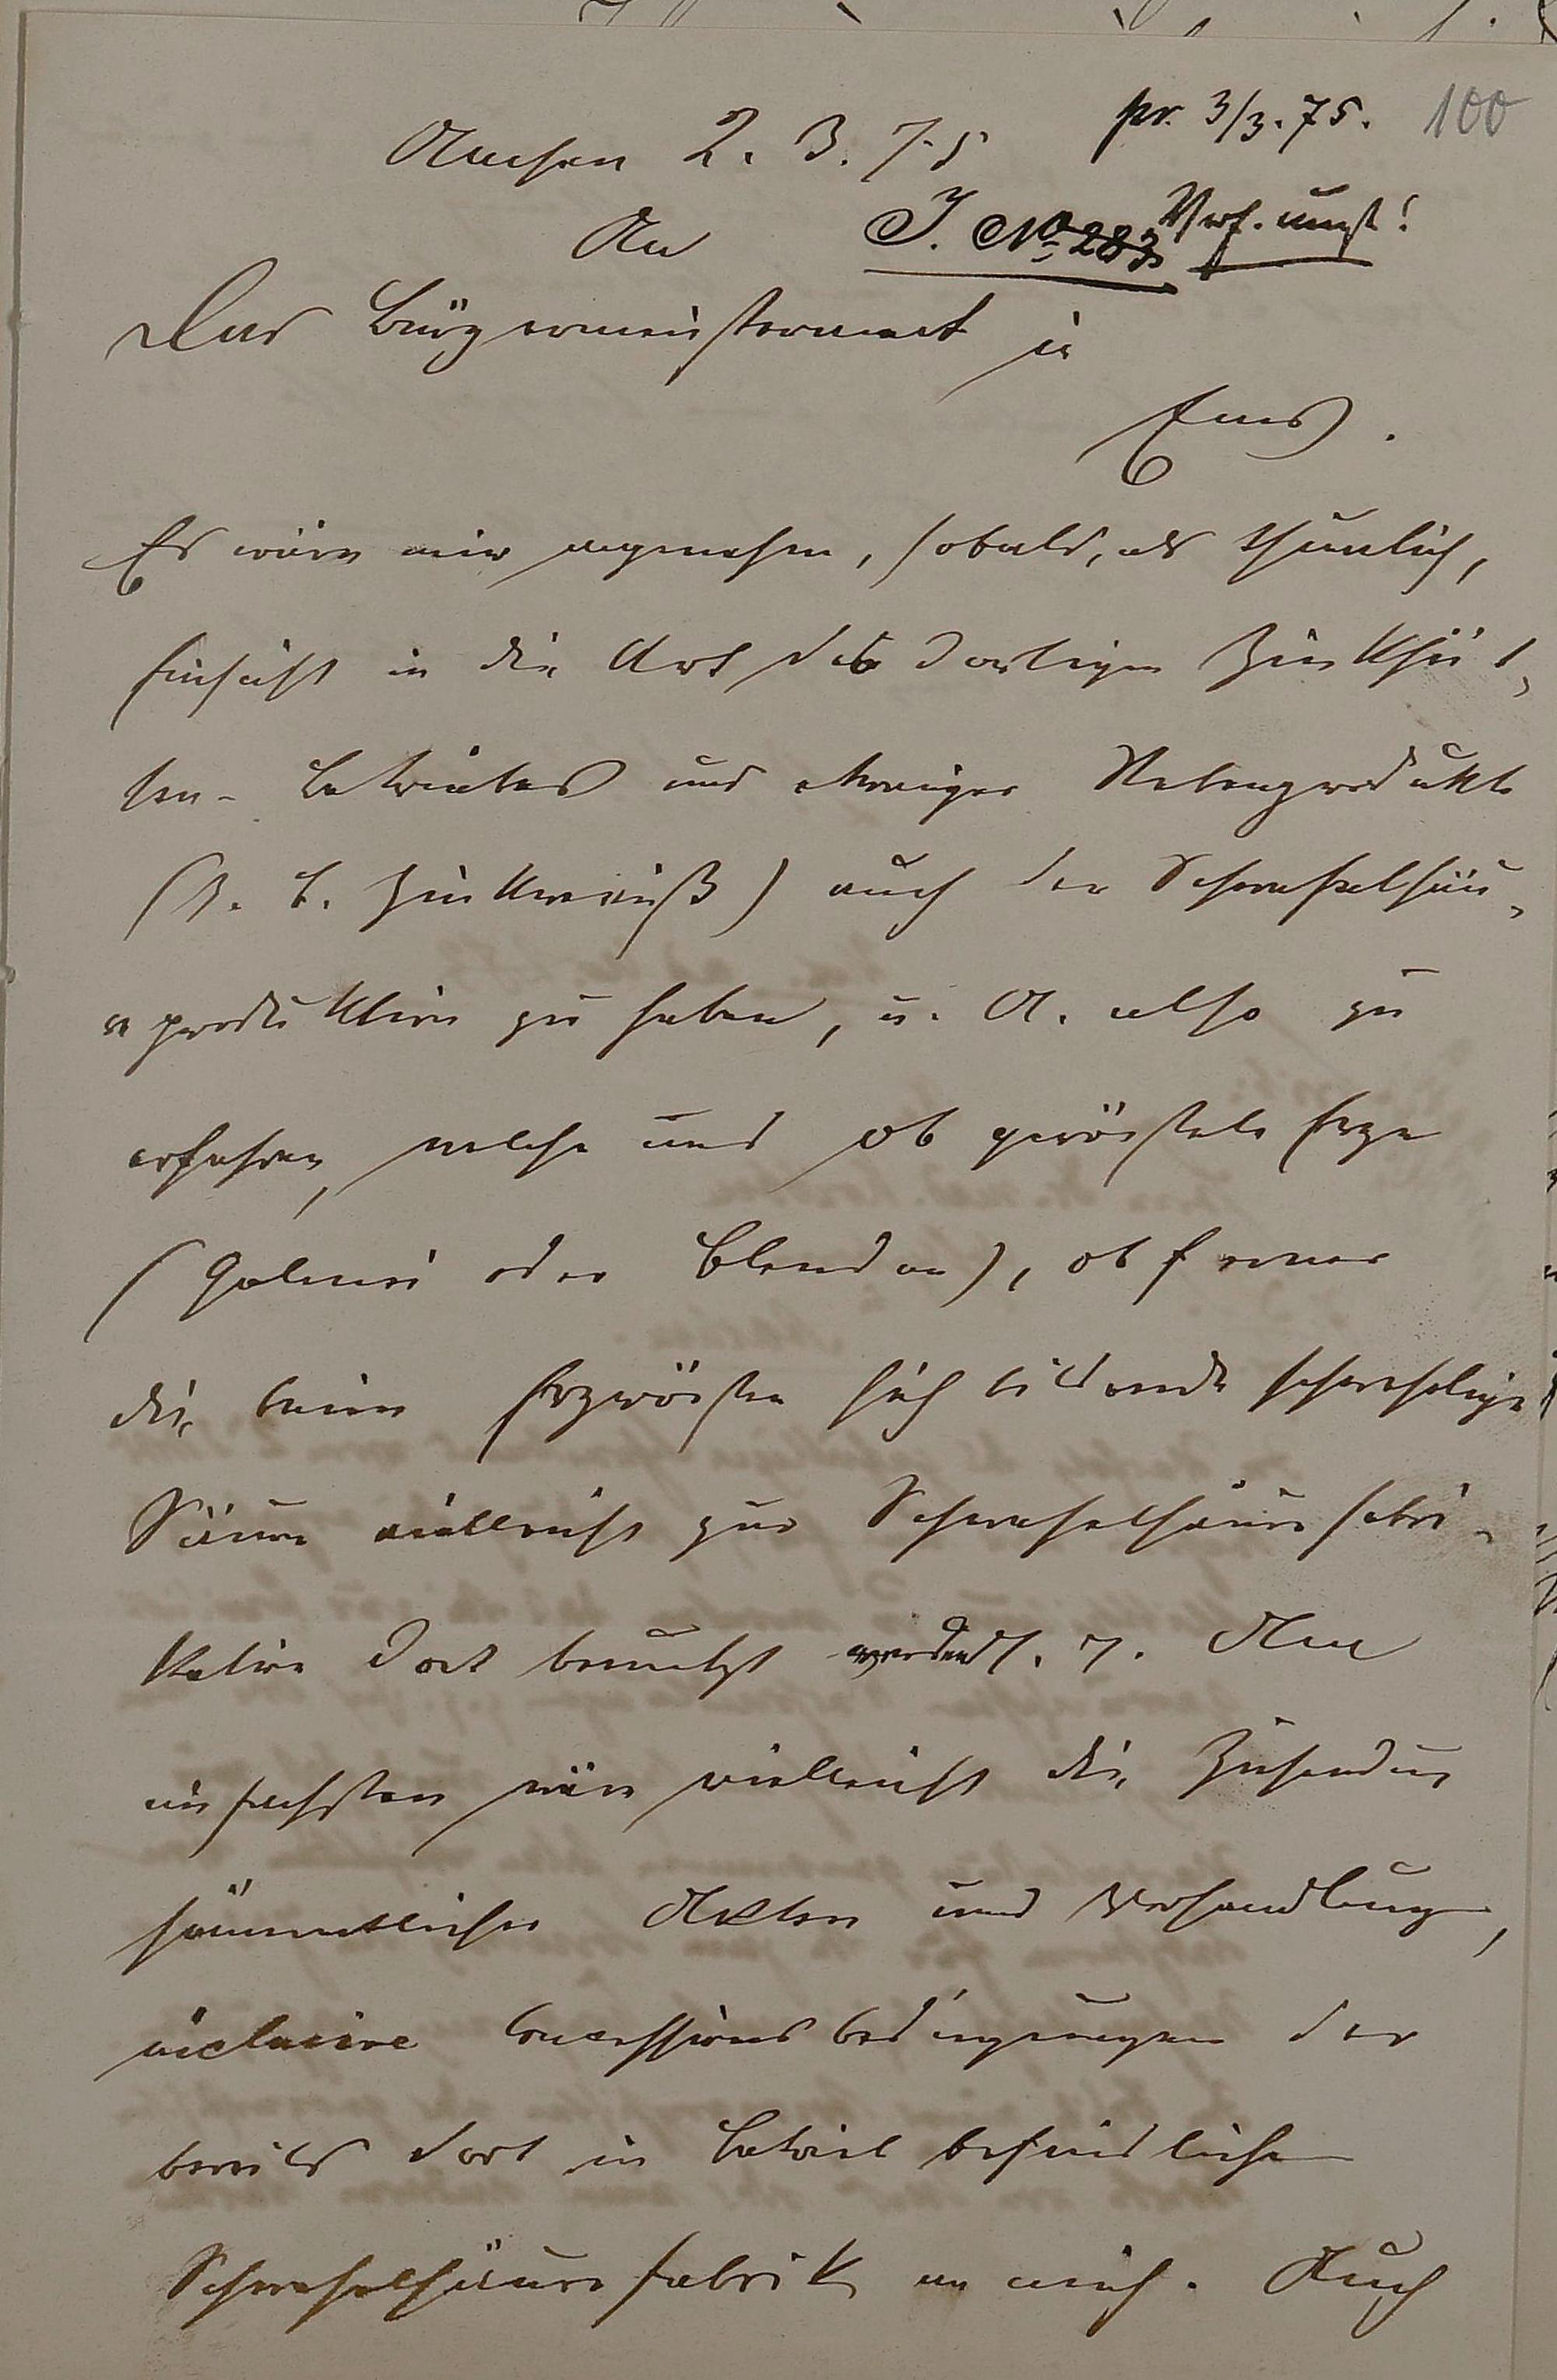 pr. 3/3. 75. 100
Aachen 2. 3. 75
J. No 283 Vrf. umst!
An
Das Bürgermeisteramt in
Ems.
Es wäre mir angenehm, sobald, als thunlich,
Einsicht in die Art des dortigen Zinkhüt-
ten-Betriebes und etwaiger Nebenprodukte
(z. B. Zinkweiß) auch der Schwefelsäu-
reproduktion zu haben, u. A. also zu
erfahren, welche und ob geröstete Erze
(Galmei oder Blenden), ob ferner
die beim Erzrösten sich bildende schwefelige
Säure vielleicht zur Schwefelsäurefabri-
kation dort benutzt werden
einfachsten wäre vielleicht die Zusendung
sämmtlicher Akten und Verhandlungen,
inclusive Concessionsbedingungen der
bereits dort in Betrieb befindlichen
Schwefelsäurefabrik an mich. Auch